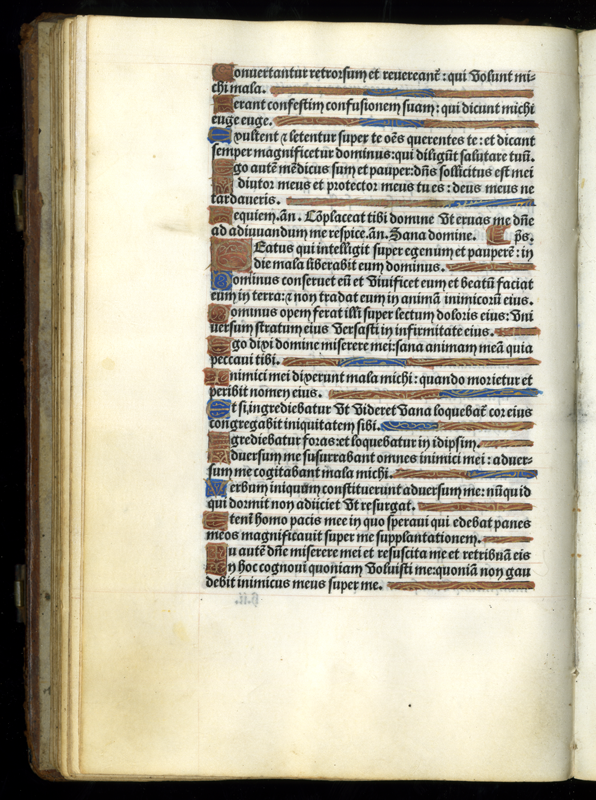 Conuertantur retrorsum et reuereant̃ : qui Volunt mi-
chi mala.
Ferant confestim confusionem suam : qui dicunt michi
euge euge.
Exultent ⁊ letentur super te oẽs querentes te : et dicant
semper magnificetur dominus : qui diligũt salutare tuũ.
Ego autẽ mẽdicus sum et pauper : dñs sollicitus est mei
Adiutor meus et protector meus tu es : deus meus ne
tardaueris.
Requiem. añ. Cõplaceat tibi domine Vt eruas me dñe
ad adiuuandum me respice. añ. Sana domine. ps̃.
BEatus qui intelligit super egenum et pauperẽ : in
die mala liberabit eum dominus.
Dominus conseruet eũ et Viuificet eum et beatũ faciat
eum in terra : ⁊ non tradat eum in animã inimicorũ eius.
Dominus opem ferat illi super lectum doloris eius : Vni
uersum stratum eius Versasti in infirmitate eius.
Ego dixi domine miserere mei : sana animam meã quia
peccaui tibi.
Inimici mei dixerunt mala michi : quando morietur et
peribit nomen eius.
Et si ingrediebatur Vt Videret Vana loquebat̃ cor eius
congregabit iniquitatem sibi.
Egrediebatur foras : et loquebatur in idipsum.
Aduersum me susurrabant omnes inimici mei : aduer-
sum me cogitabant mala michi.
Verbum iniquum constituerunt aduersum me : nũquid
qui dormit non adiiciet Vt resurgat.
Eteni homo pacis mee in quo speraui qui edebat panes
meos magnificauit super me supplantationem.
Tu autẽ dñe miserere mei et resuscita me et retribuã eis
In hoc cognoui quoniam Voluisti me : quoniã non gau
debit inimicus meus super me.